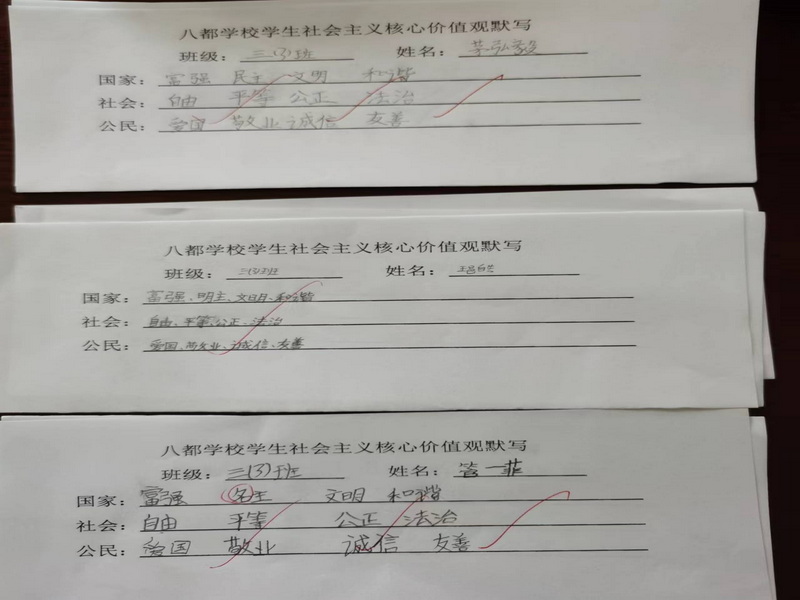 八都学校学生社会主义核心价值观默写
班级：三(3)班 姓名：
国家：富强 民主 文明 和谐
社会：自由 平等 公正 法治
公民：爱国 敬业 诚信 友善
八都学校学生社会主义核心价值观默写
班级：三(3)班 姓名：
国家：富强、明主、文明、和谐
社会：自由、平等、公正、法治
公民：爱国、敬业、诚信、友善
八都学校学生社会主义核心价值观默写
班级：三(3)班 姓名：管一菲
国家：富强 名主 文明 和谐
社会：自由 平等 公正 法治
公民：爱国 敬业 诚信 友善